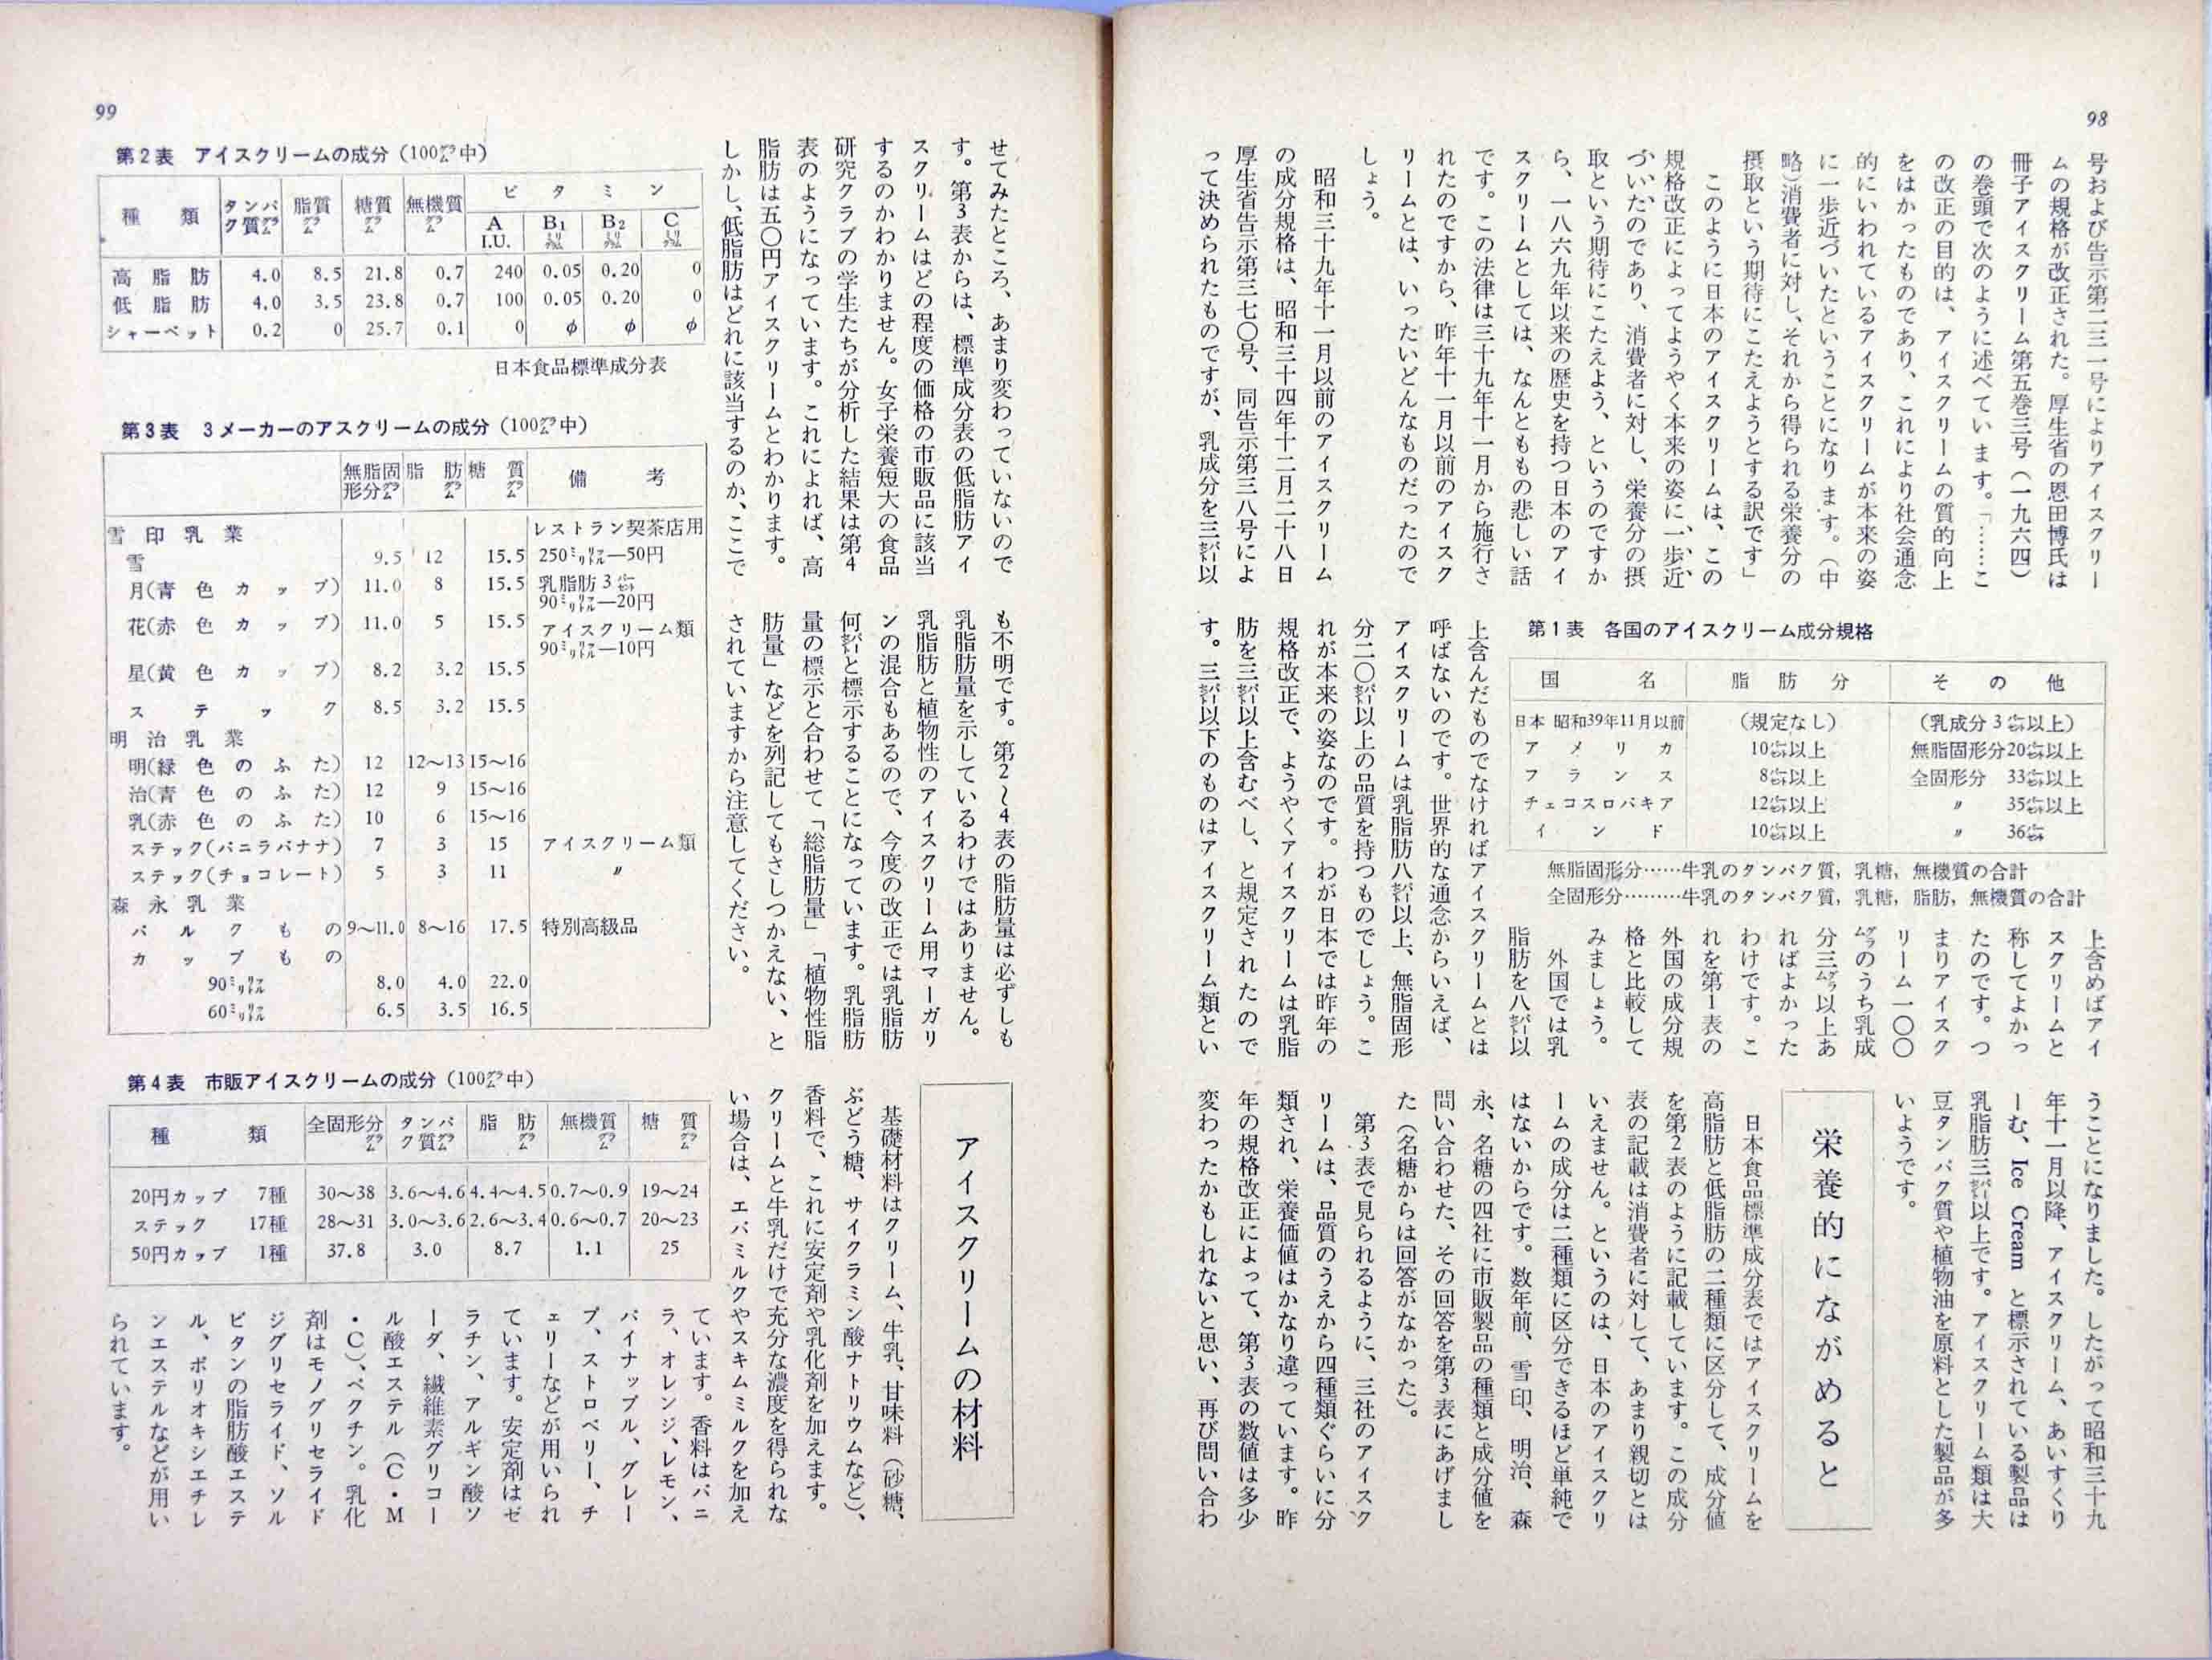 98
号および告示第二三一号によりアイスクリー
ムの規格が改正された。厚生省の恩田博氏は
冊子アイスクリーム第五巻三号（一九六四）
の巻頭で次のように述べています。「……こ
の改正の目的は、アイスクリームの質的向上
をはかったものであり、これにより社会通念
的にいわれているアイスクリームが本来の姿
に一歩近づいたということになります。（中
略）消費者に対し、それから得られる栄養分の
摂取という期待にこたえようとする訳です」
このように日本のアイスクリームは、この
規格改正によってようやく本来の姿に一歩近
づいたのであり、消費者に対し、栄養分の摂
取という期待にこたえよう、というのですか
ら、一八六九年以来の歴史を持つ日本のアイ
スクリームとしては、なんともの悲しい話
です。この法律は三十九年十一月から施行さ
れたのですから、昨年十一月以前のアイスク
リームとは、いったいどんなものだったので
しょう。
昭和三十九年十一月以前のアイスクリーム
の成分規格は、昭和三十四年十二月二十八日
厚生省告示第三七〇号、同告示第三八号によ
って決められたものですが、乳成分を三㌫以
第1表 各国のアイスクリーム成分規格
国 名 脂肪分 その他
日本 昭和39年11月以前 （規定なし） （乳成分3㌫以上）
アメリカ 10㌫以上 無脂固形分20㌫以上
フランス 8㌫以上 全固形分 33㌫以上
チェコスロバキア 12㌫以上 〃 35㌫以上
インド 10㌫以上 〃 36㌫
無脂固形分……牛乳のタンパク質，乳糖，無機質の合計
全固形分………牛乳のタンパク質，乳糖，脂肪，無機質の合計
上含めばアイ
スクリームと
称してよかっ
たのです。つ
まりアイスク
リーム一〇〇
㌘のうち乳成
分三㌘以上あ
ればよかった
わけです。こ
れを第1表の
外国の成分規
格と比較して
みましょう。
外国では乳
脂肪を八㌫以
上含んだものでなければアイスクリームとは
呼ばないのです。世界的な通念からいえば、
アイスクリームは乳脂肪八㌫以上、無脂固形
分二〇㌫以上の品質を持つものでしょう。こ
れが本来の姿なのです。わが日本では昨年の
規格改正で、ようやくアイスクリームは乳脂
肪を三㌫以上含むべし、と規定されたので
す。三㌫以下のものはアイスクリーム類とい
うことになりました。したがって昭和三十九
年十一月以降、アイスクリーム、あいすくり
ーむ、Ice Cream と標示されている製品は
乳脂肪三㌫以上です。アイスクリーム類は大
豆タンパク質や植物油を原料とした製品が多
いようです。
栄養的にながめると
日本食品標準成分表ではアイスクリームを
高脂肪と低脂肪の二種類に区分して、成分値
を第2表のように記載しています。この成分
表の記載は消費者に対して、あまり親切とは
いえません。というのは、日本のアイスクリ
ームの成分は二種類に区分できるほど単純で
はないからです。数年前、雪印、明治、森
永、名糖の四社に市販製品の種類と成分値を
問い合わせた、その回答を第3表にあげまし
た（名糖からは回答がなかった）。
第3表で見られるように、三社のアイスク
リームは、品質のうえから四種類ぐらいに分
類され、栄養価値はかなり違っています。昨
年の規格改正によって、第3表の数値は多少
変わったかもしれないと思い、再び問い合わ
99
せてみたところ、あまり変わっていないので
す。第3表からは、標準成分表の低脂肪アイ
スクリームはどの程度の価格の市販品に該当
するのかわかりません。女子栄養短大の食品
研究クラブの学生たちが分析した結果は第4
表のようになっています。これによれば、高
脂肪は五〇円アイスクリームとわかります。
しかし、低脂肪はどれに該当するのか、ここで
も不明です。第2〜4表の脂肪量は必ずしも
乳脂肪量を示しているわけではありません。
乳脂肪と植物性のアイスクリーム用マーガリ
ンの混合もあるので、今度の改正では乳脂肪
何㌫と標示することになっています。乳脂肪
量の標示と合わせて「総脂肪量」「植物性脂
肪量」などを列記してもさしつかえない、と
されていますから注意してください。
第2表 アイスクリームの成分（100㌘中）
種類 タンパク質㌘ 脂質㌘ 糖質㌘ 無機質㌘ ビタミン
A I.U. B₁ ㍉㌘ B₂ ㍉㌘ C ㍉㌘
高脂肪 4.0 8.5 21.8 0.7 240 0.05 0.20 0
低脂肪 4.0 3.5 23.8 0.7 100 0.05 0.20 0
シャーベット 0.2 0 25.7 0.1 0 φ φ φ
日本食品標準成分表
第3表 3メーカーのアスクリームの成分（100㌘中）
無脂固形分㌘ 脂肪㌘ 糖質㌘ 備考
雪印乳業 レストラン契茶店用
雪 9.5 12 15.5 250㍉㍑—50円
月（青色カップ） 11.0 8 15.5 乳脂肪3㌫
90㍉㍑—20円
花（赤色カップ） 11.0 5 15.5 アイスクリーム類
90㍉㍑—10円
星（黄色カップ） 8.2 3.2 15.5
ステック 8.5 3.2 15.5
明治乳業
明（緑色のふた） 12 12〜13 15〜16
治（青色のふた） 12 9 15〜16
乳（赤色のふた） 10 6 15〜16
ステック（バニラバナナ） 7 3 15 アイスクリーム類
ステック（チョコレート） 5 3 11 〃
森永乳業
バルクもの 9〜11.0 8〜16 17.5 特別高級品
カップもの
90㍉㍑ 8.0 4.0 22.0
60㍉㍑ 6.5 3.5 16.5
第4表 市販アイスクリームの成分（100㌘中）
種類 全固形分㌘ タンパク質㌘ 脂肪㌘ 無機質㌘ 糖質㌘
20円カップ 7種 30〜38 3.6〜4.6 4.4〜4.5 0.7〜0.9 19〜24
ステック 17種 28〜31 3.0〜3.6 2.6〜3.4 0.6〜0.7 20〜23
50円カップ 1種 37.8 3.0 8.7 1.1 25
アイスクリームの材料
基礎材料はクリーム、牛乳、甘味料（砂糖、
ぶどう糖、サイクラミン酸ナトリウムなど）、
香料で、これに安定剤や乳化剤を加えます。
クリームと牛乳だけで充分な濃度を得られな
い場合は、エバミルクやスキムミルクを加え
ています。香料はバニ
ラ、オレンジ、レモン、
パイナップル、グレー
プ、ストロベリー、チ
ェリーなどが用いられ
ています。安定剤はゼ
ラチン、アルギン酸ソ
ーダ、繊維素グリコー
ル酸エステル（C・M
・C）、ペクチン。乳化
剤はモノグリセライド
ジグリセライド、ソル
ビタンの脂肪酸エステ
ル、ポリオキシエチレ
ンエステルなどが用い
られています。